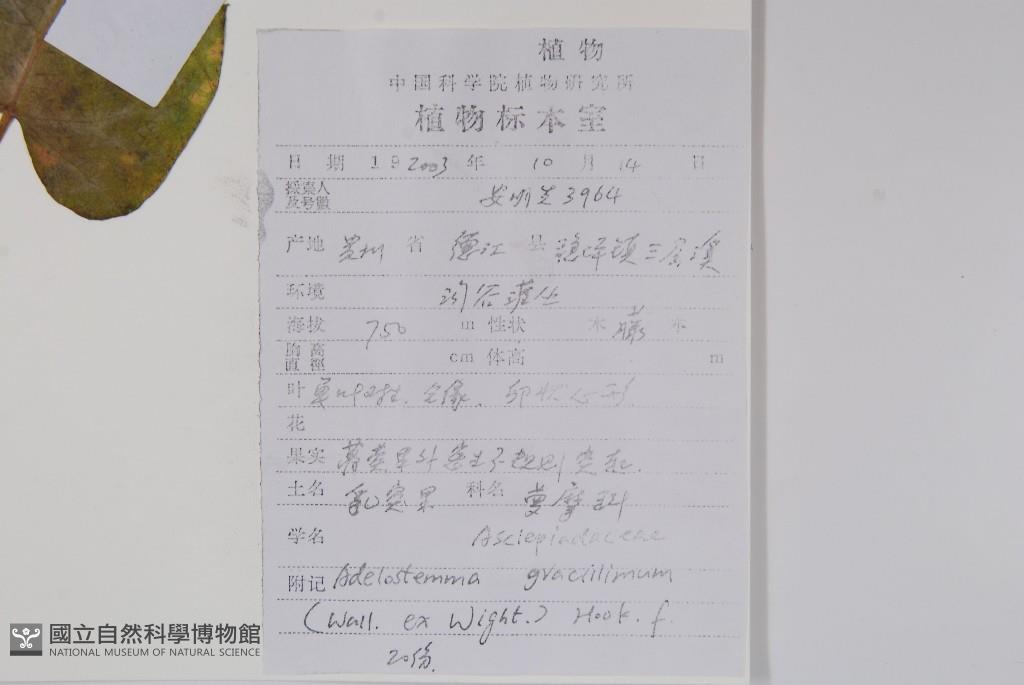 植物
中国科学院植物研究所
植物标本室
日期 19 2003 年 10 月 14 日
採集人及号數 安明先 3964
产地 贵州 省 德江 县 稳坪镇三会溪
环境 沟谷灌丛
海拔 750 m 性状 木 藤 本
胸高直徑 cm 体高 m
叶 单叶对生、全缘、卵状心形
花
果实 蓇葖果外密生不规则突起.
土名 乳突果 科名 萝摩科
学名 Asclepiadaceae
附记 Adelostemma gracilimum
(Wall. ex Wight.) Hook. f.
20份.
國立自然科學博物館
NATIONAL MUSEUM OF NATURAL SCIENCE